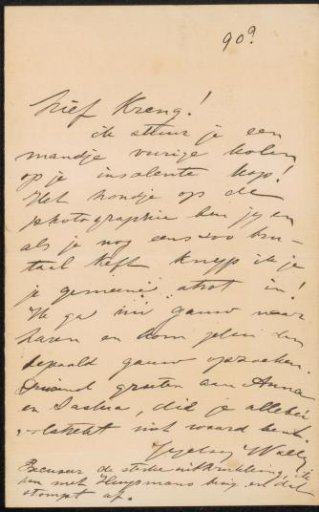 90?
Lief Kreng!
ik stuur je een
mandje vurige kolen
op je insolente kop!
Het hondje op de
photographie ben jij en
als je nog eens zoo bru-
taal keft knijp ik je
je gemeene strot in!
Ik ga nu gauw naar
haven en kom jelui dan
bepaald gauw opzoeken.
groeten aan Anna
en Sascha, die je allebei
niet waard bent.
Wally
Excuseer de sterke uitdrukking, ik
ben met Huysmans bezig en dat
stompt af.